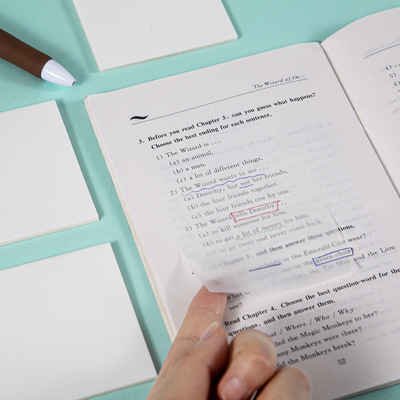 The Wizard of Oz
3. Before you read Chapter 3, can you guess what happens?
Choose the best ending for each sentence.
1) The Wizard is ...
(a) an animal.
(b) a man.
(c) a lot of different things.
2) The Wizard wants to see ...
(a) Dorothy, but not her friends.
(b) the four friends together.
(c) the four friends one by one.
3) The Wizard tells Dorothy
(a) to kill someone for him.
(b) to get a lot of money for him.
(c) to go away and never come back.
Chapter 3, and then answer these questions.
in the Emerald City wear?
and the Lion
What
see?
Read Chapter 4. Choose the best question-word for these
questions, and then answer them.
What / Where / Who / Why
called the Magic Monkeys to her?
many Monkeys were there?
did the Monkeys break?
52
4.
5.